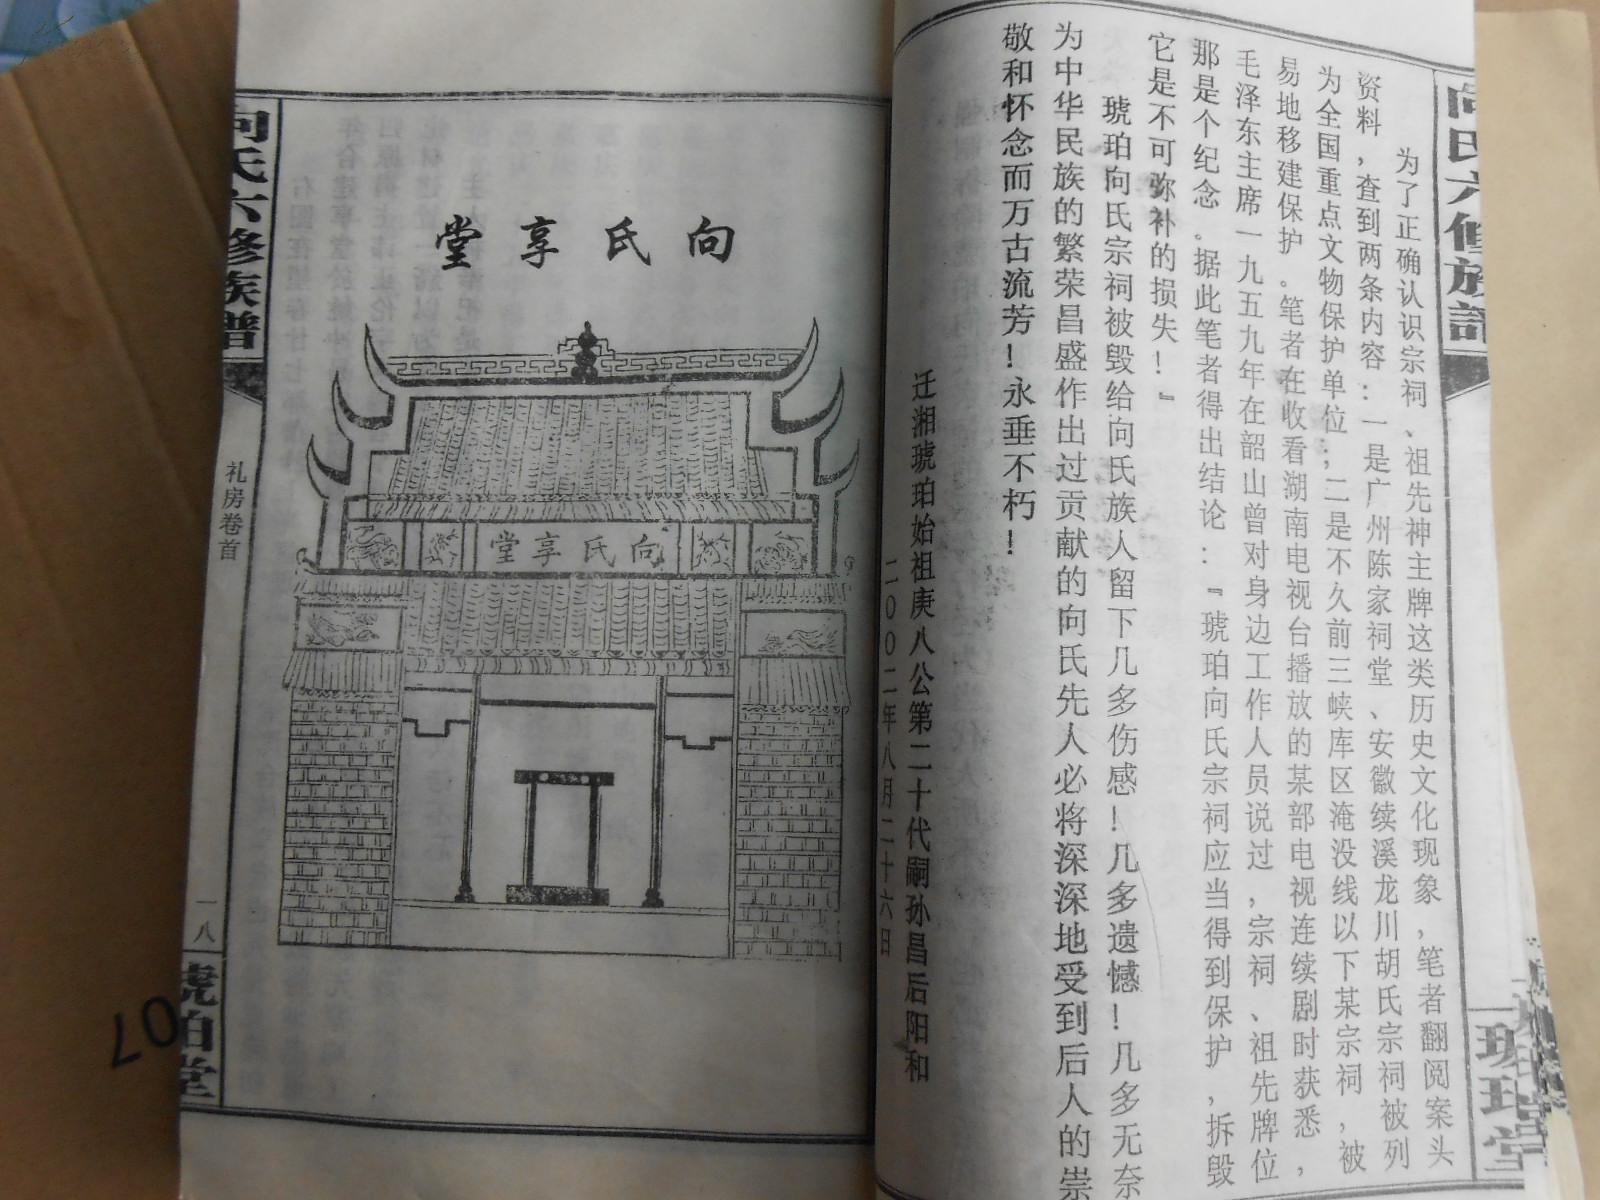 向氏六修族譜
琥珀堂
为了正确认识宗祠、祖先神主牌这类历史文化现象，笔者翻阅案头
资料，查到两条内容：一是广州陈家祠堂、安徽续溪龙川胡氏宗祠被列
为全国重点文物保护单位；二是不久前三峡库区淹没线以下某宗祠，被
易地移建保护。笔者在收看湖南电视台播放的某部电视连续剧时获悉，
毛泽东主席一九五九年在韶山曾对身边工作人员说过，宗祠、祖先牌位
那是个纪念。据此笔者得出结论：『琥珀向氏宗祠应当得到保护，拆毁
它是不可弥补的损失！』
琥珀向氏宗祠被毁给向氏族人留下几多伤感！几多遗憾！几多无奈
为中华民族的繁荣昌盛作出过贡献的向氏先人必将深深地受到后人的崇
敬和怀念而万古流芳！永垂不朽！
迁湘琥珀始祖庚八公第二十代嗣孙昌后阳和
二００二年八月二十六日
向氏享堂
向氏享堂
向氏六修族譜
礼房卷首
一八
琥珀堂